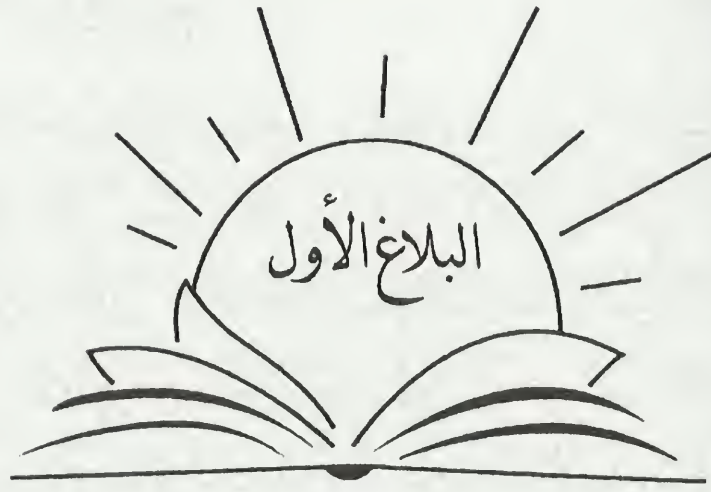 البلاغ الأول